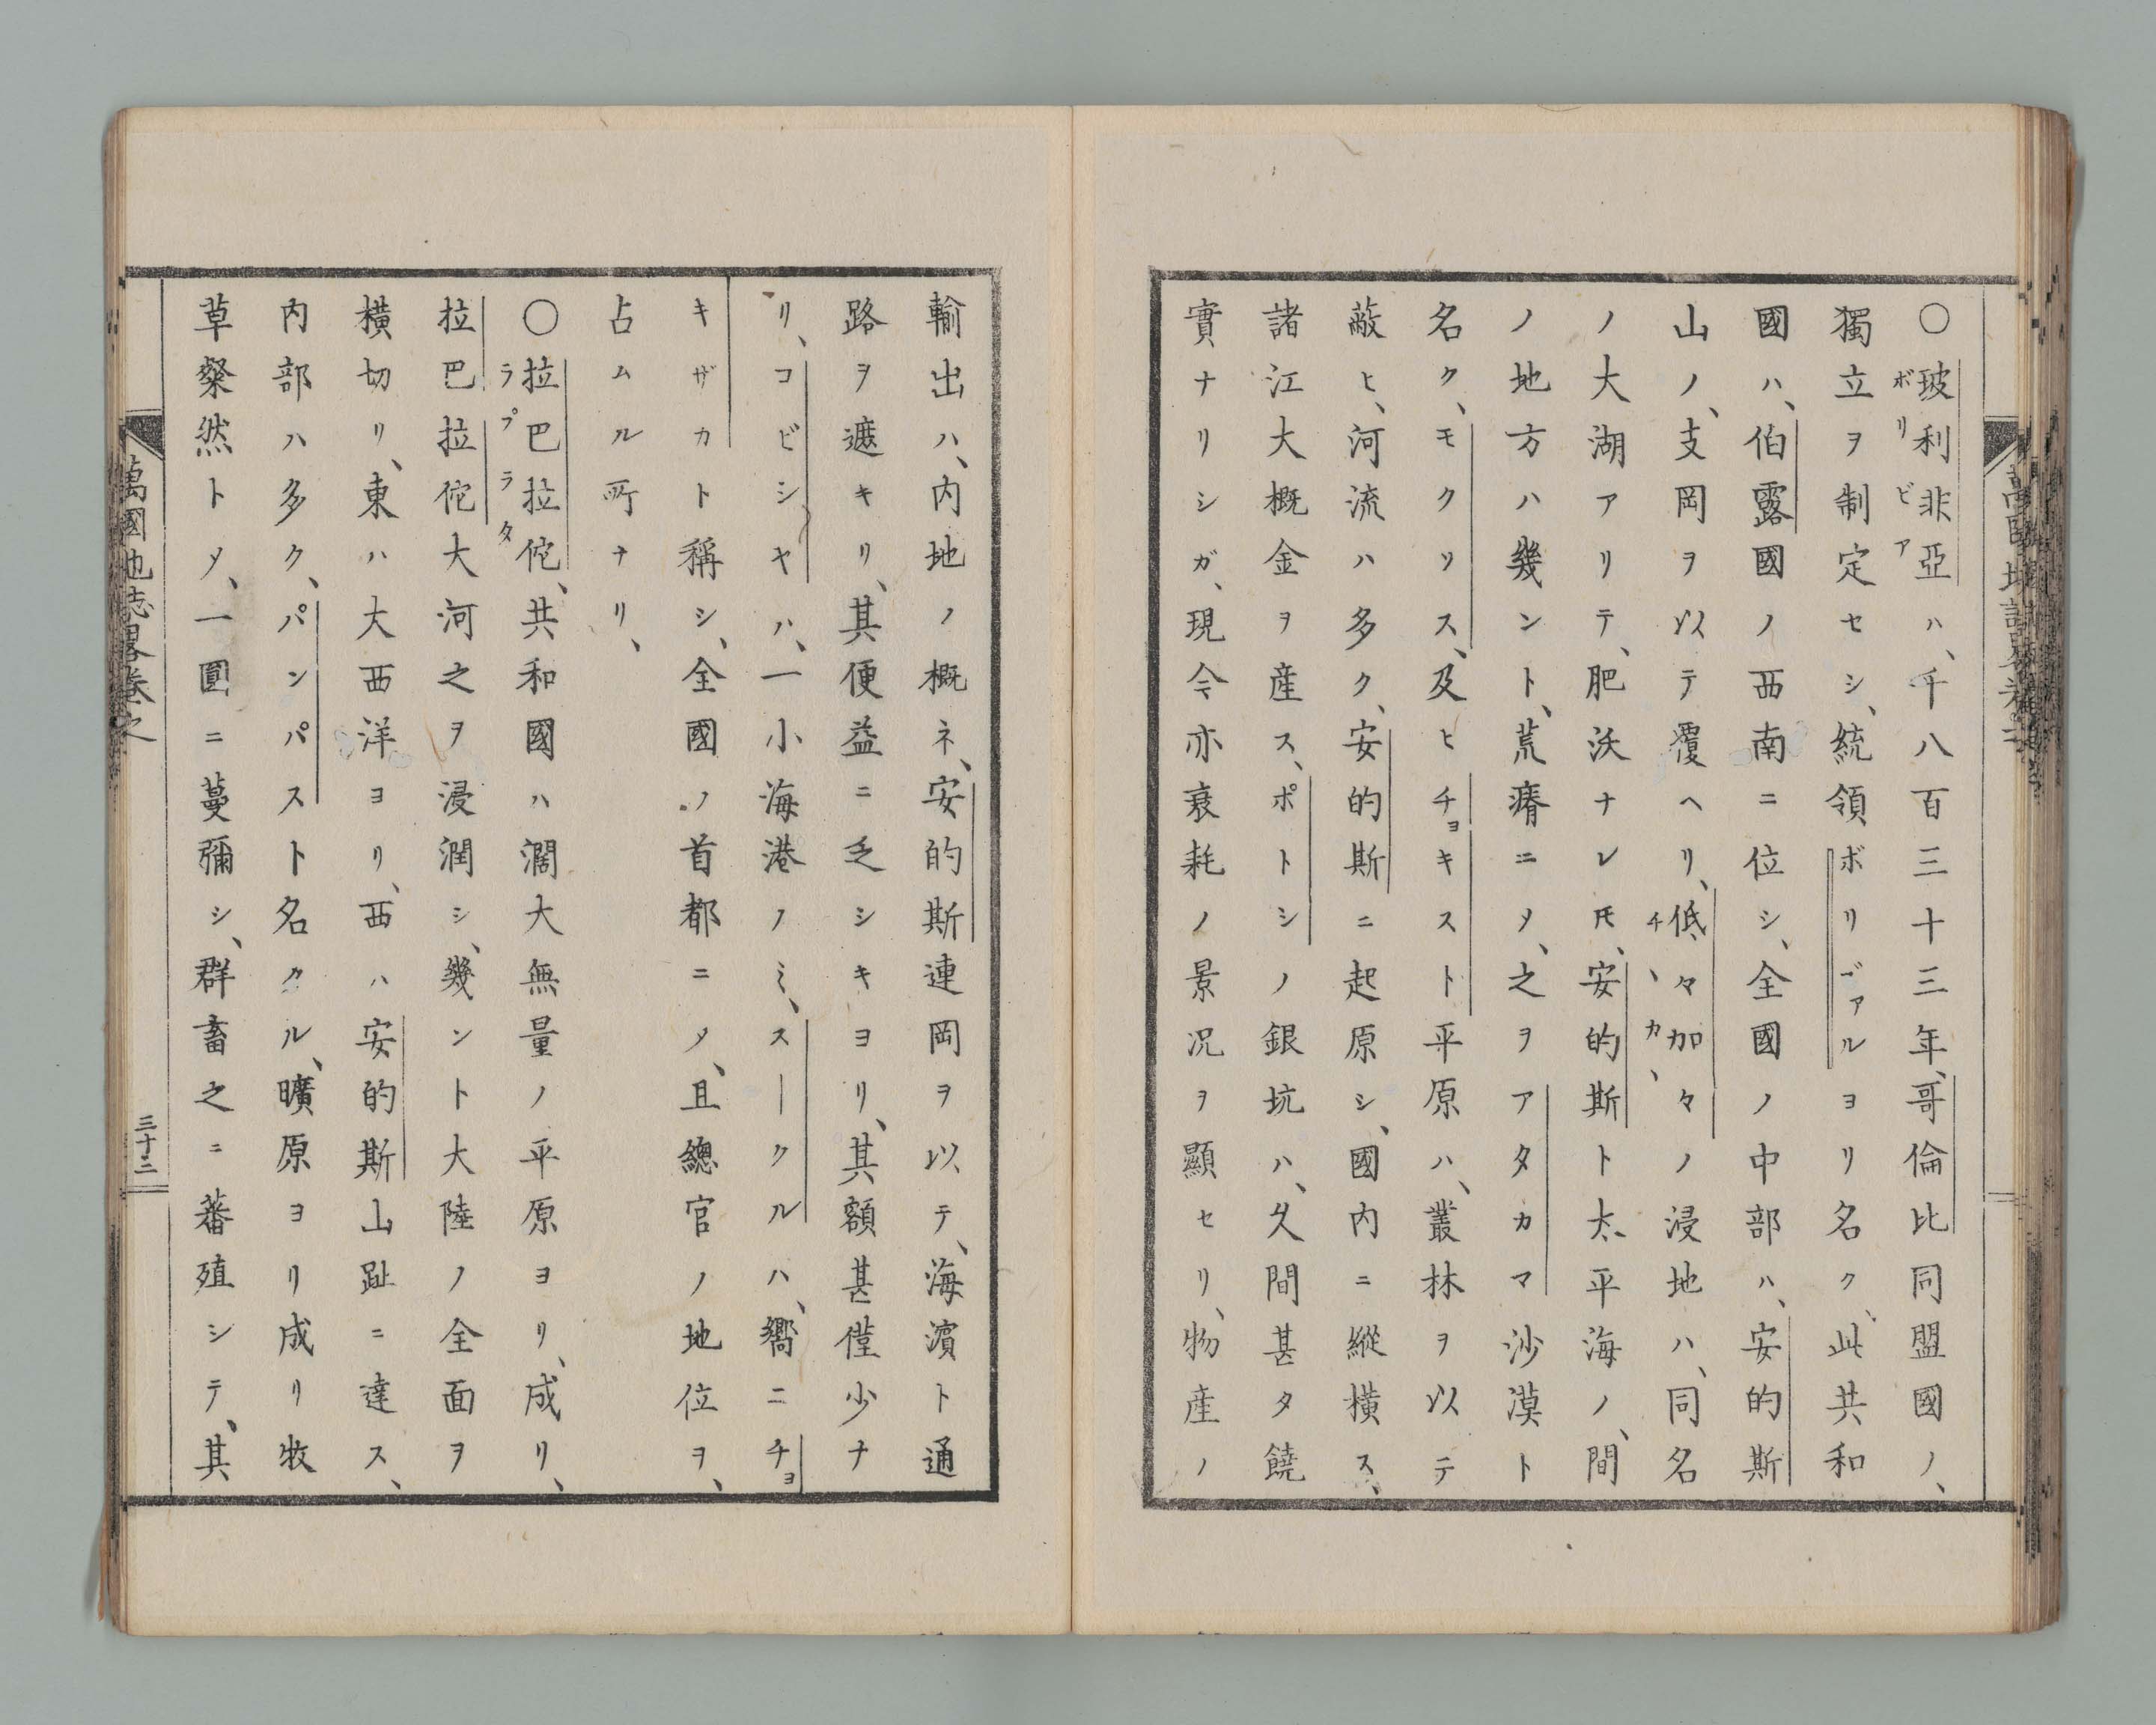 〇玻利非亞ハ、千八百三十三年、哥倫比同盟國ノ、
ボリビア
獨立ヲ制定セシ、統領ボリヴァルヨリ名ク、此共和
國ハ、伯露國ノ西南ニ位シ、全國ノ中部ハ、安的斯
山ノ、支岡ヲ以テ覆ヘリ、低々加々ノ浸地ハ、同名
チ、カ、
ノ大湖アリテ、肥沃ナレ𪜈、安的斯ト太平海ノ、間
ノ地方ハ幾ント、荒瘠ニ〆、之ヲアタカマ沙漠ト
名ク、モクソス、及ヒチョキスト平原ハ、叢林ヲ以テ
蔽ヒ、河流ハ多ク、安的斯ニ起原シ、國内ニ縱横ス、
諸江大概金ヲ産ス、ポトシノ銀坑ハ、久間甚タ饒
實ナリシガ、現今亦衰耗ノ景况ヲ顯セリ、物産ノ
輸出ハ、内地ノ概ネ、安的斯連岡ヲ以テ、海濱ト通
路ヲ遮キリ、其便益ニ乏シキヨリ、其額甚僅少ナ
リ、コビシヤハ、一小海港ノミ、スークルハ、嚮ニチョ
キザカト稱シ、全國ノ首都ニ〆、且總官ノ地位ヲ、
占ムル所ナリ、
〇拉巴拉佗、共和國ハ濶大無量ノ平原ヨリ、成リ、
ラプラタ
拉巴拉佗大河之ヲ浸潤シ、幾ント大陸ノ全面ヲ
横切リ、東ハ大西洋ヨリ、西ハ安的斯山趾ニ達ス、
内部ハ多ク、パンパスト名クル、曠原ヨリ成リ牧
草粲然ト〆、一圓ニ蔓彌シ、群畜之ニ蕃殖シテ、其
萬國地誌畧卷之
三十二